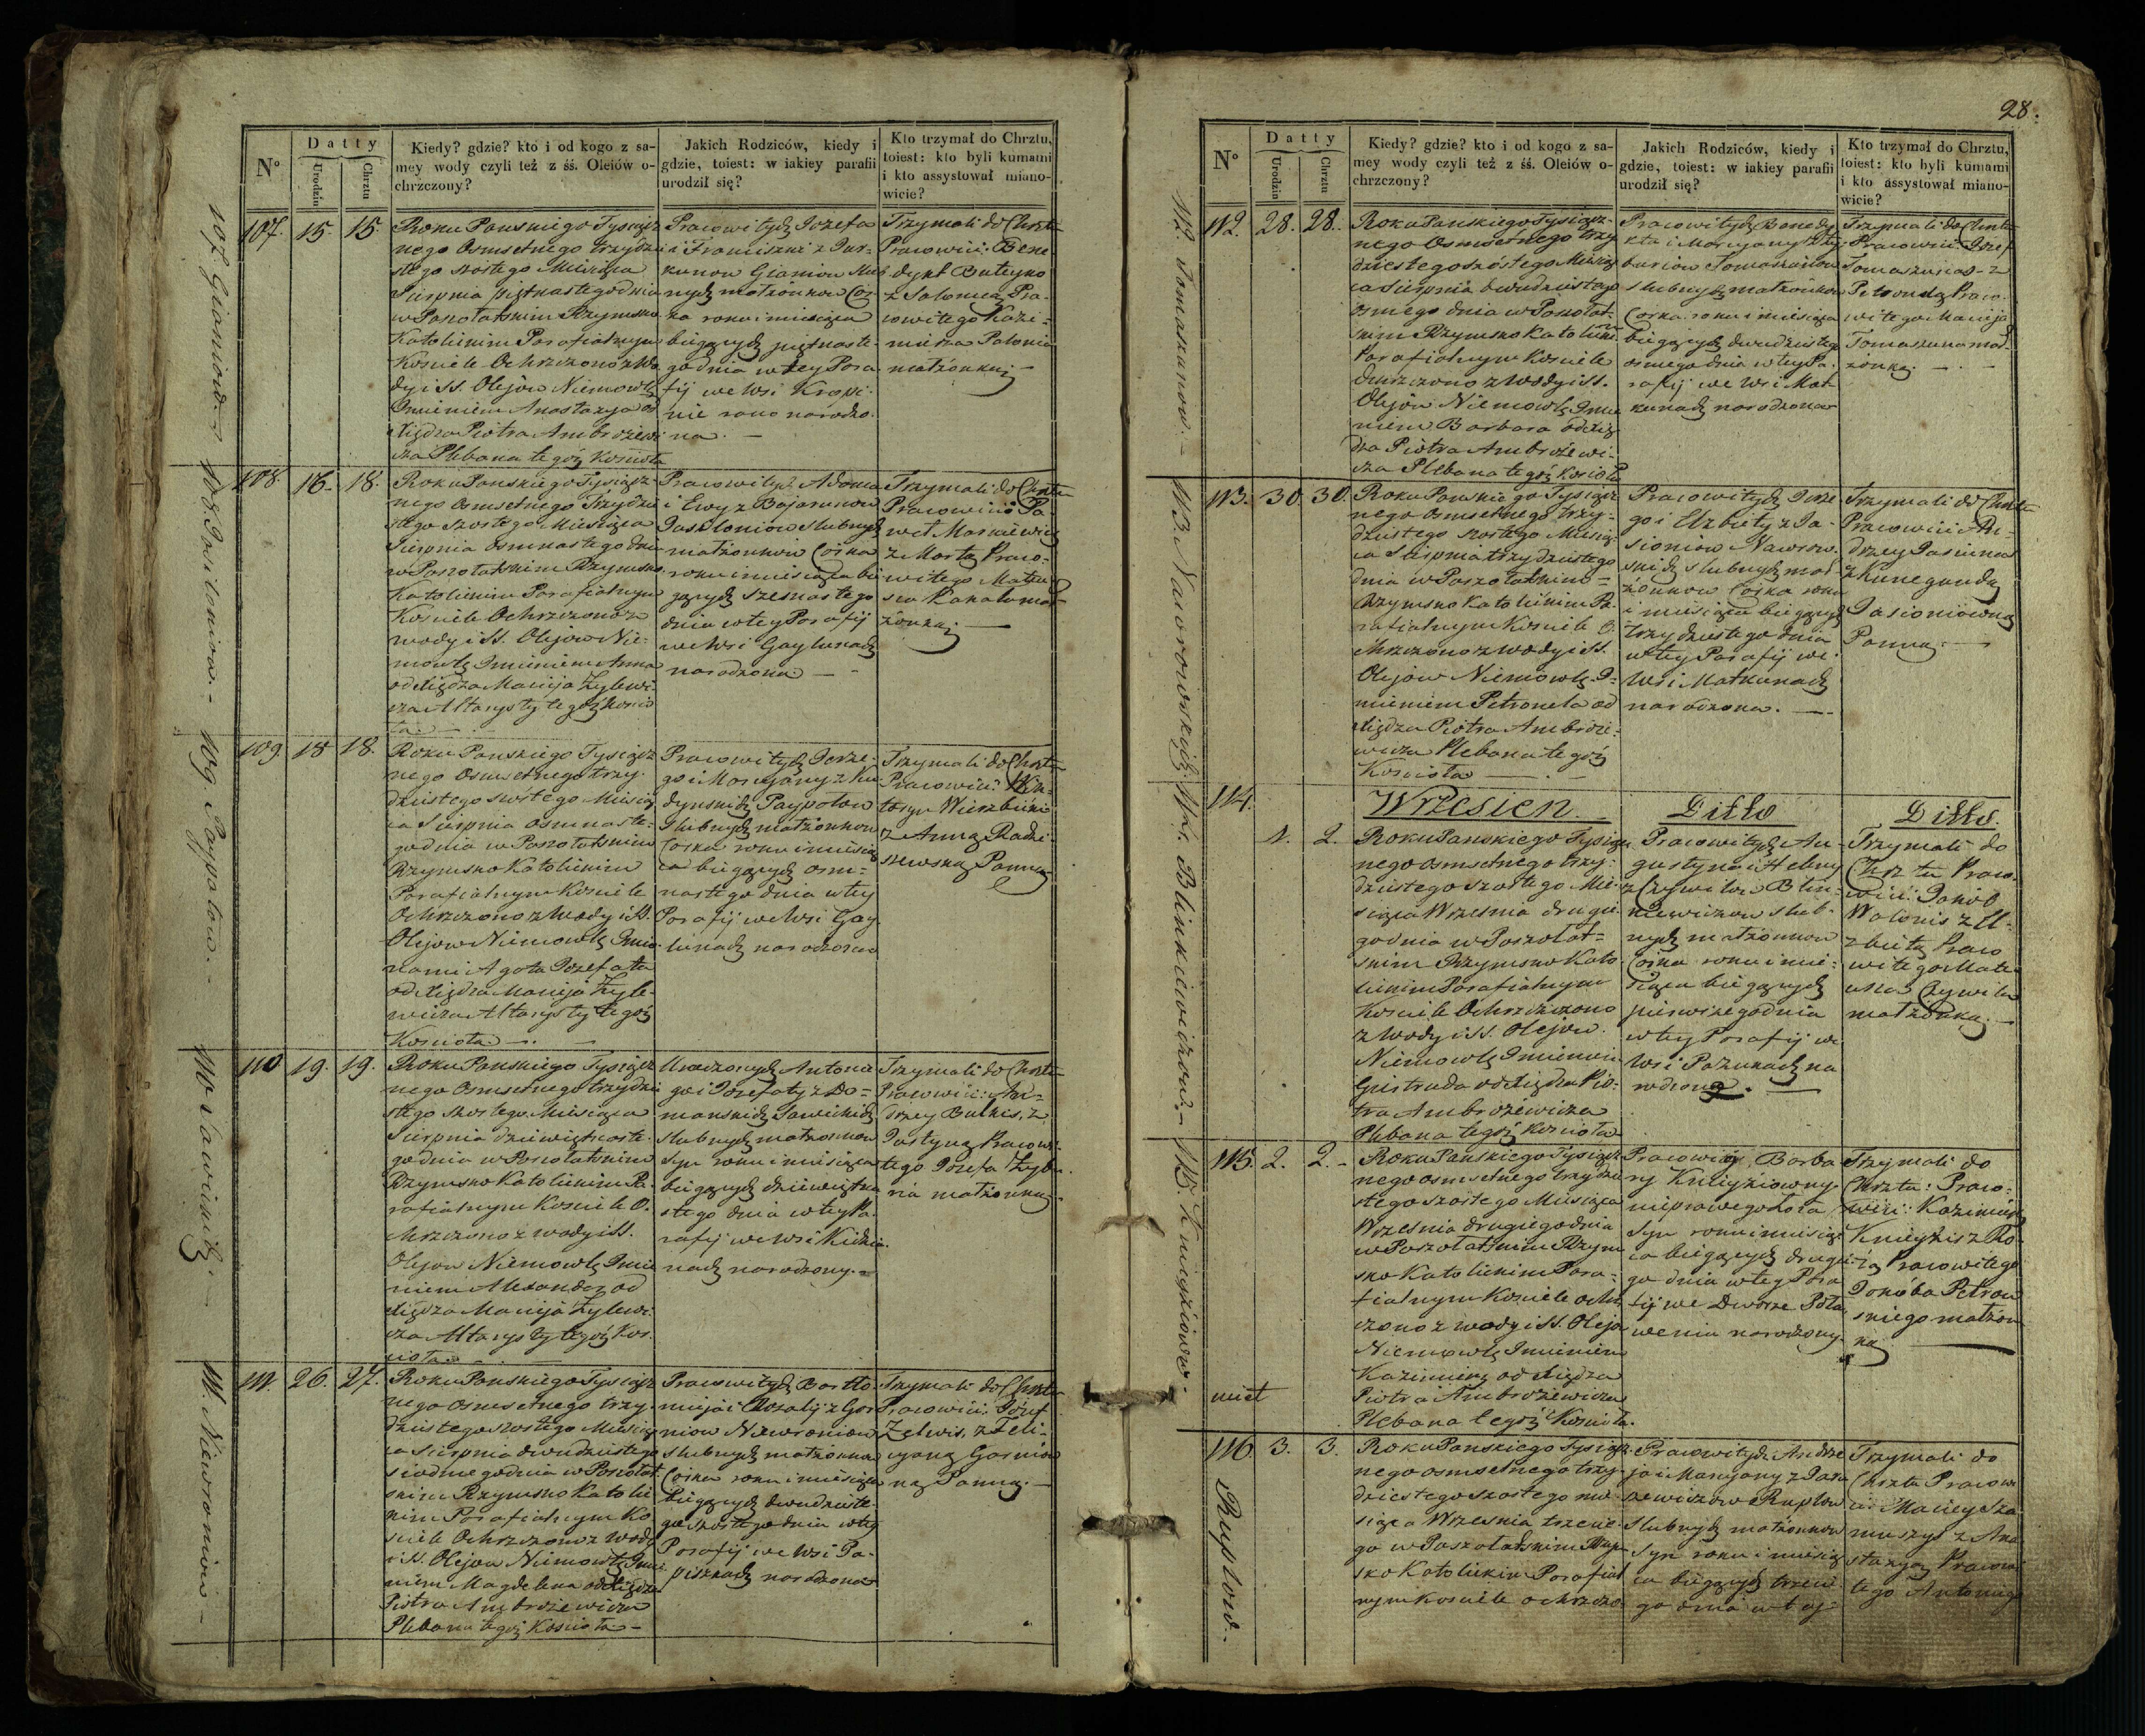 28.
N°
Datty
Urodzin
Chrztu
Kiedy? gdzie? kto i od kogo z sa-
mey wody czyli też z śś. Oleiów o-
chrzczony?
Jakich Rodziców, kiedy i
gdzie, toiest: w iakiey parafii
urodził się?
Kto trzymał do Chrztu,
toiest: kto byli kumami
i kto assystował miano-
wicie?
107.
15.
15
Roku Panskiego Tysiącz
nego Osmsetnego trzydzie
stego szostego Miesiąca
Sierpnia piętnastego dnia
w Poszołatskim Rzymsko
Katolickim Parafialnym
Kosciele Ochrzczono z Wo
dy i SS. Olejow Niemowlę
Imieniem Anastazya od
Xiędza Piotra Ambrożewi
cza Plebana tegóż Kosciola
Pracowitych Jozefa
i Franciszki z
slub
nych małżonkow Cor
ka roku i miesiąca
bieżących piętnaste-
go dnia w tey Para
fij we Wsi Kropi-
nie rano narodzo-
na. —
Trzymali do Chrztu
Pracowici: Bene
dykt Buteyko
z Salomeą Pra-
cowitego Kazi-
mierza Palonia
małżonką —
108.
16.
18.
Roku Panskiego Tysiącz-
nego Osmsetnego Trzydzie
stego szostego Miesiąca
Sierpnia Osmnastego dnia
w Poszołatskim Rzymsko
Katolickim Parafialnym
Kosciele Ochrzczono z
wody i SS. Olejow Nie-
mowlę Imieniem Anna
od Xiędza Macieja Żylewi-
cza Altarysty tegóż Koscio
ła. —
Pracowitych Adama
i Ewy z Bojarunow
slubnych
małżonkow Corka
roku i miesiąca bie
gących szesnastego
dnia w tey Parafij
we Wsi Gaylunach
narodzona —
Trzymali do Chrztu
Pracowici Pa-
weł Maskiewicz
z Martą Praco-
witego Mateu
sza
żonką —
109.
18
18.
Roku Panskiego Tysiącz
nego Osmsetnego trzy-
dziestego szóstego Miesią
ca Sierpnia osmnaste-
go dnia w Poszołatskim
Rzymsko Katolickim
Parafialnym Kosciele
Ochrzczono z Wody i SS.
Olejow Niemowlę Imio-
nami Agata Jozefata
od Xiędza Macieja Żyle-
wicza Altarysty tegóż
Kosciola —
Pracowitych Jerze-
go i Maryanny z Ku
dynskich Paypołow
Slubnych małżonkow
Corka roku i miesią
ca bieżących osm-
nastego dnia w tey
Parafij we Wsi Gay-
lunach narodzona
Trzymali do Chrztu
Pracowici: Win-
Wierzbicki
z Anną Radzi-
szewską Panną
110
19.
19.
Roku Panskiego Tysiącz
nego Osmsetnego trzydzie
stego szostego Miesiąca
Sierpnia dziewiętnaste-
go dnia w Poszołatskim
Rzymsko Katolickim Pa-
rafialnym Kosciele O-
chrzczono z wody i SS.
Olejow Niemowlę Imie
niem Alexander od
Xiędza Macieja Żylewi-
cza Altarysty tegóż Kos-
cioła —
Urodzonych Antonie
go i Jozefaty z Do-
manskich Sawickich
Slubnych małżonkow
Syn roku i miesiąca
bieżących dziewiętna
stego dnia w tey Pa-
rafij we Wsi
narodzony. —
Trzymali do Chrztu
Pracowici: An-
drzey Bulkis, z
Justyną Pracowi
tego Jozefa
małżonką
111.
26.
27.
Roku Panskiego Tysiącz
nego Osmsetnego trzy-
dziestego szostego Miesią
ca Sierpnia dwudziestego
siodmego dnia w Poszołat
skim Rzymsko Katolic
kim Parafialnym Ko
sciele Ochrzczono z Wody
i SS. Olejow Niemowlę Imie
niem Magdalena od Xiędza
Piotra Ambrożewicza
Plebana tegóż Kosciola —
Pracowitych Bartło
mieja i Rozalij z Gas
niow Niewroniow
slubnych małżonkow
Corka roku i miesiąca
bieżących dwudzieste-
go szostego dnia w tey
Parafij we Wsi Po-
piszkach narodzona
Trzymali do Chrztu
Pracowici: Józef
Zelwis, z Feli-
cyaną Gasniow
ną Panną. —
107. Gianiow.
109. Paypałow. —
110 Sawickich. —
111. Niewroniow —
N°
Datty
Urodzin
Chrztu
Kiedy? gdzie? kto i od kogo z sa-
mey wody czyli też z śś. Oleiów o-
chrzczony?
Jakich Rodziców, kiedy i
gdzie, toiest: w iakiey parafii
urodził się?
Kto trzymał do Chrztu,
toiest: kto byli kumami
i kto assystował miano-
wicie?
112. Tomaszunow. —
112.
28.
28.
Roku Panskiego Tysiącz-
nego Osmsetnego trzy
dziestego szóstego Miesią
ca Sierpnia dwudziestego
osmego dnia w Poszołat-
skim Rzymsko Katolickim
Parafialnym Kosciele
Ochrzczono z Wody i SS.
Olejów Niemowlę Imie
niem Barbara od Xię
dza Piotra Ambrożewi-
cza Plebana tegóż Kosciola
Pracowitych Benedy
kta i Maryanny
Tomaszunow
slubnych małżonkow
Corka roku i miesiąca
bieżących dwudziestego
osmego dnia w tey Pa-
rafij we Wsi Mat-
kunach narodzona
Trzymali do Chrztu
Pracowici: Jozef
Tomaszunas z
Petronelą Praco-
witego Macieja
Tomaszuna mał
żonką. —
113.
30.
30.
Roku Panskiego Tysiącz
nego Osmsetnego trzy-
dziestego szostego Miesią-
ca Sierpnia trzydziestego
dnia w Poszołatskim
Rzymsko Katolickim Pa-
rafialnym Kosciele O-
chrzczono z wody i SS.
Olejow Niemowlę I-
mieniem Petronela od
Xiędza Piotra Ambroże-
wicza Plebana tegóż
Kosciola —
Pracowitych Jerze
go i Elżbiety z Ja-
sioniow
slubnych mał-
żonkow Corka roku
i miesiąca bieżących
trzydziestego dnia
w tey Parafij we
Wsi Matkunach
narodzona. —
Trzymali do Chrztu
Pracowici: An-
drzey
z Kunegundą
Jasioniowną
Panną. —
114.
Wrzesien.
Ditto
Ditto.
1.
2.
Roku Panskiego Tysiącz
nego Osmsetnego trzy-
dziestego szostego Mie-
siąca Wrzesnia drugie-
go dnia w Poszołat-
skim Rzymsko Kato
lickim Parafialnym
Kosciele Ochrzczono
z Wody i SS. Olejow.
Niemowlę Imieniem
Giertruda od Xiędza Pio-
tra Ambrożewicza
Plebana tegóż Kosciola
Pracowitych Au-
gustyna i Heleny
z Czywilow Blin-
kiewiczow slub-
nych małżonkow
Corka roku i mie-
siąca bieżących
pierwszego dnia
w tey Parafij we
Wsi Pażunach na
rodzona. —
Trzymali do
Chrztu Praco-
wici: Jakób
Walonis z El-
żbietą Praco
witego Mate-
usza Czywila
małżonką. —
114. Blinkiewiczow. —
115. Knieyziowow. —
115.
2.
2.
Roku Panskiego Tysiącz
nego osmsetnego trzydzie
stego szostego Miesiąca
Wrzesnia drugiego dnia
w Poszołatskim Rzym
sko Katolickim Para-
fialnym Kosciele ochrz
czono z wody i SS. Oleja
Niemowlę Imieniem
Kazimierz od Xiędza
Piotra Ambrożewicza
Plebana tegóż Kosciola.
Pracowitey Barba
ry Knieyziowny
nieprawego łoża
Syn roku i miesią
ca bieżących drugie-
go dnia w tey Para
fij we Dworze
narodzony
Trzymali do
Chrztu: Praco-
wici: Kazimierz
Knieyzis z Ro-
zą Pracowitego
Jakóba Petrow
skiego małżon
ką —
116.
3.
3.
Roku Panskiego Tysiącz
nego osmsetnego trzy-
dziestego szostego mie-
siąca Wrzesnia trzecie-
go w Poszołatskim Rzym
sko Katolickim Parafial
nym Kosciele ochrzczo
Pracowitych Andrze
ja i Maryanny z
Ruplow
Slubnych małżonkow
Syn roku i miesią
ca bieżących trzecie-
go dnia w tey
Trzymali do
Chrztu Pracow
ici Maciey
z Ana
stazyą Pracowi
tego Antoniego
Ruplow. —